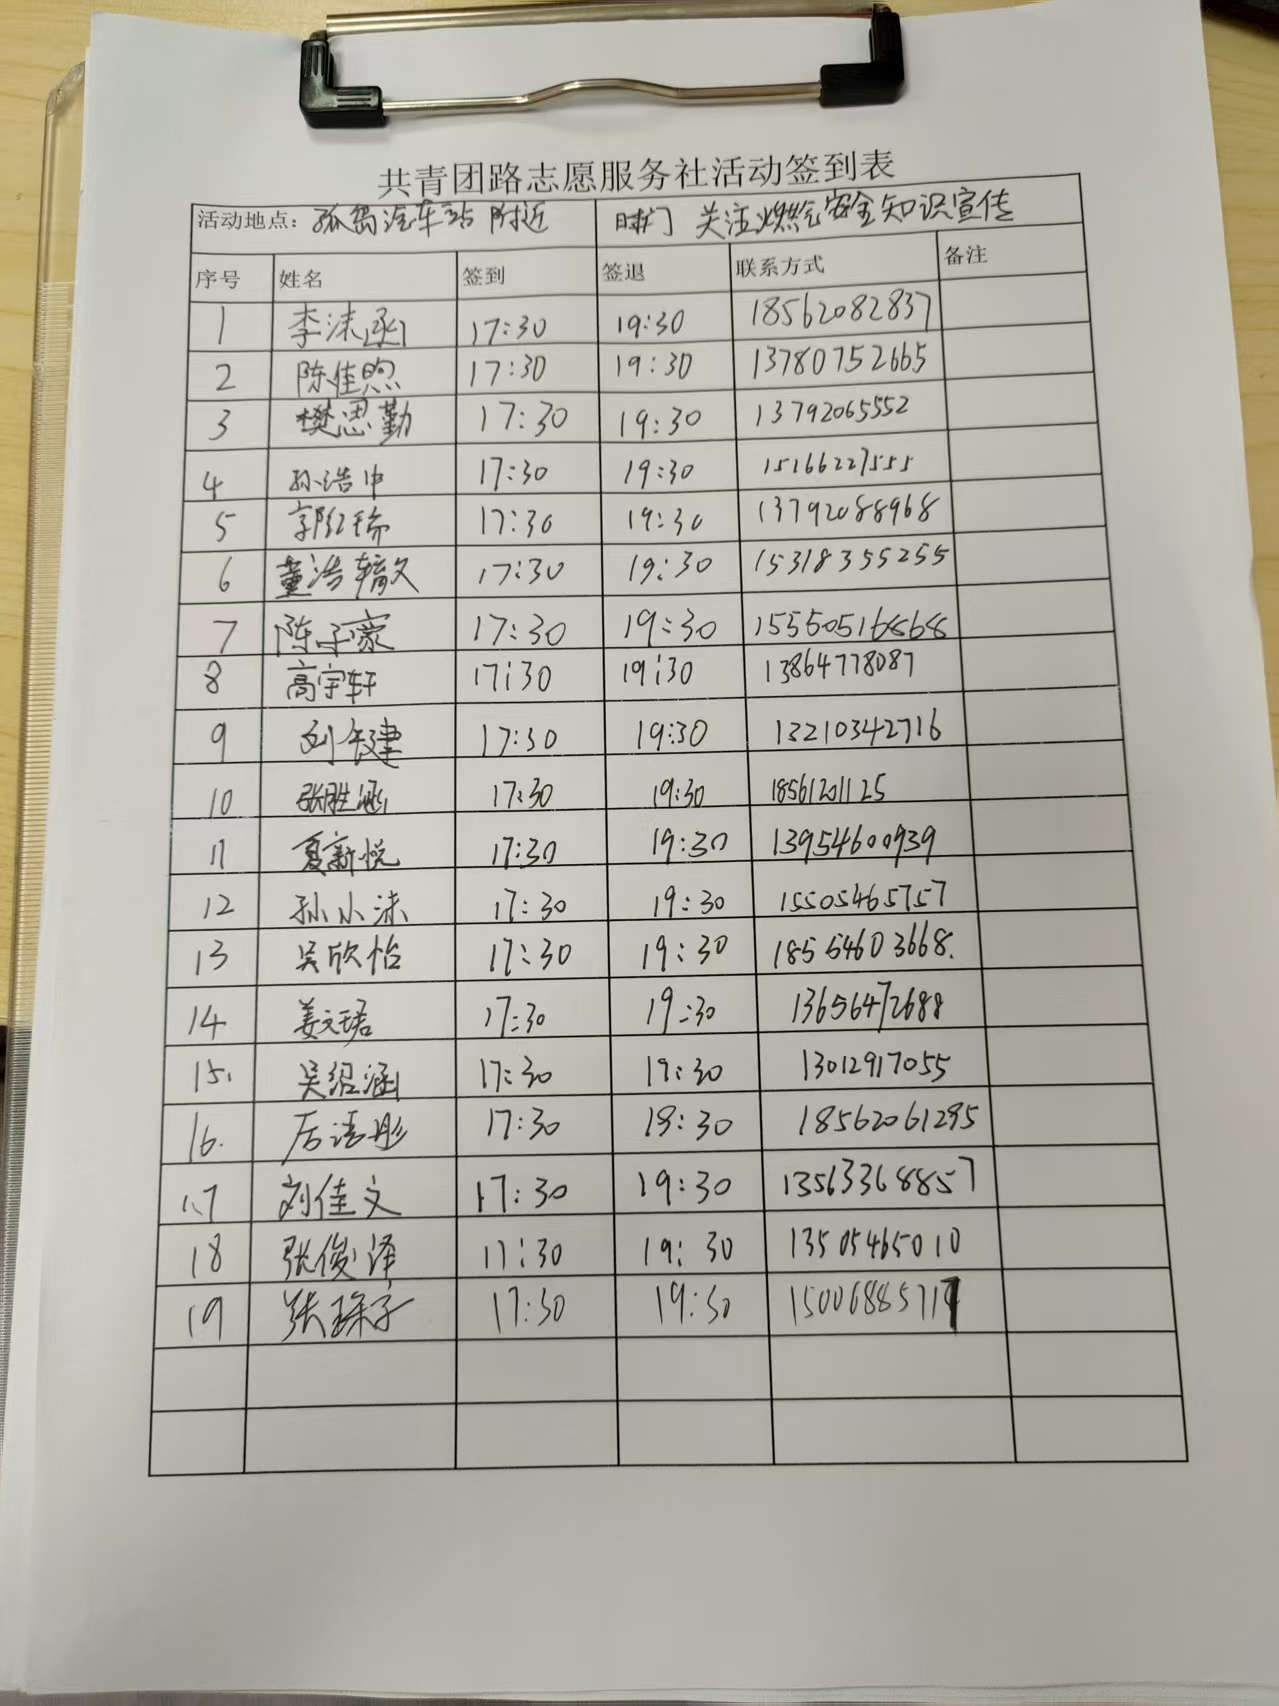 共青团路志愿服务社活动签到表
活动地点：孤岛汽车站 附近 时间 关注燃气安全知识宣传
序号 姓名 签到 签退 联系方式 备注
1 李沫函 17:30 19:30 18562082837
2 陈佳煦 17:30 19:30 13780752665
3 樊思勤 17:30 19:30 13792065552
4 孙浩中 17:30 19:30 15166227555
5 17:30 19:30 13792088968
6 董浩 17:30 19:30 15318355255
7 陈子豪 17:30 19:30 155505168668
8 高宇轩 17:30 19:30 13864778087
9 刘 建 17:30 19:30 13210342716
10 张胜涵 17:30 19:30 18561201125
11 夏新悦 17:30 19:30 13954600939
12 孙小沫 17:30 19:30 15505465757
13 吴欣怡 17:30 19:30 18554603668.
14 姜文珺 17:30 19:30 13656472688
15. 吴绍涵 17:30 19:30 13012917055
16. 17:30 19:30 18562061295
17 刘佳文 17:30 19:30 13563368857
18 张俊泽 17:30 19:30 13505465010
19 张琛子 17:30 19:30